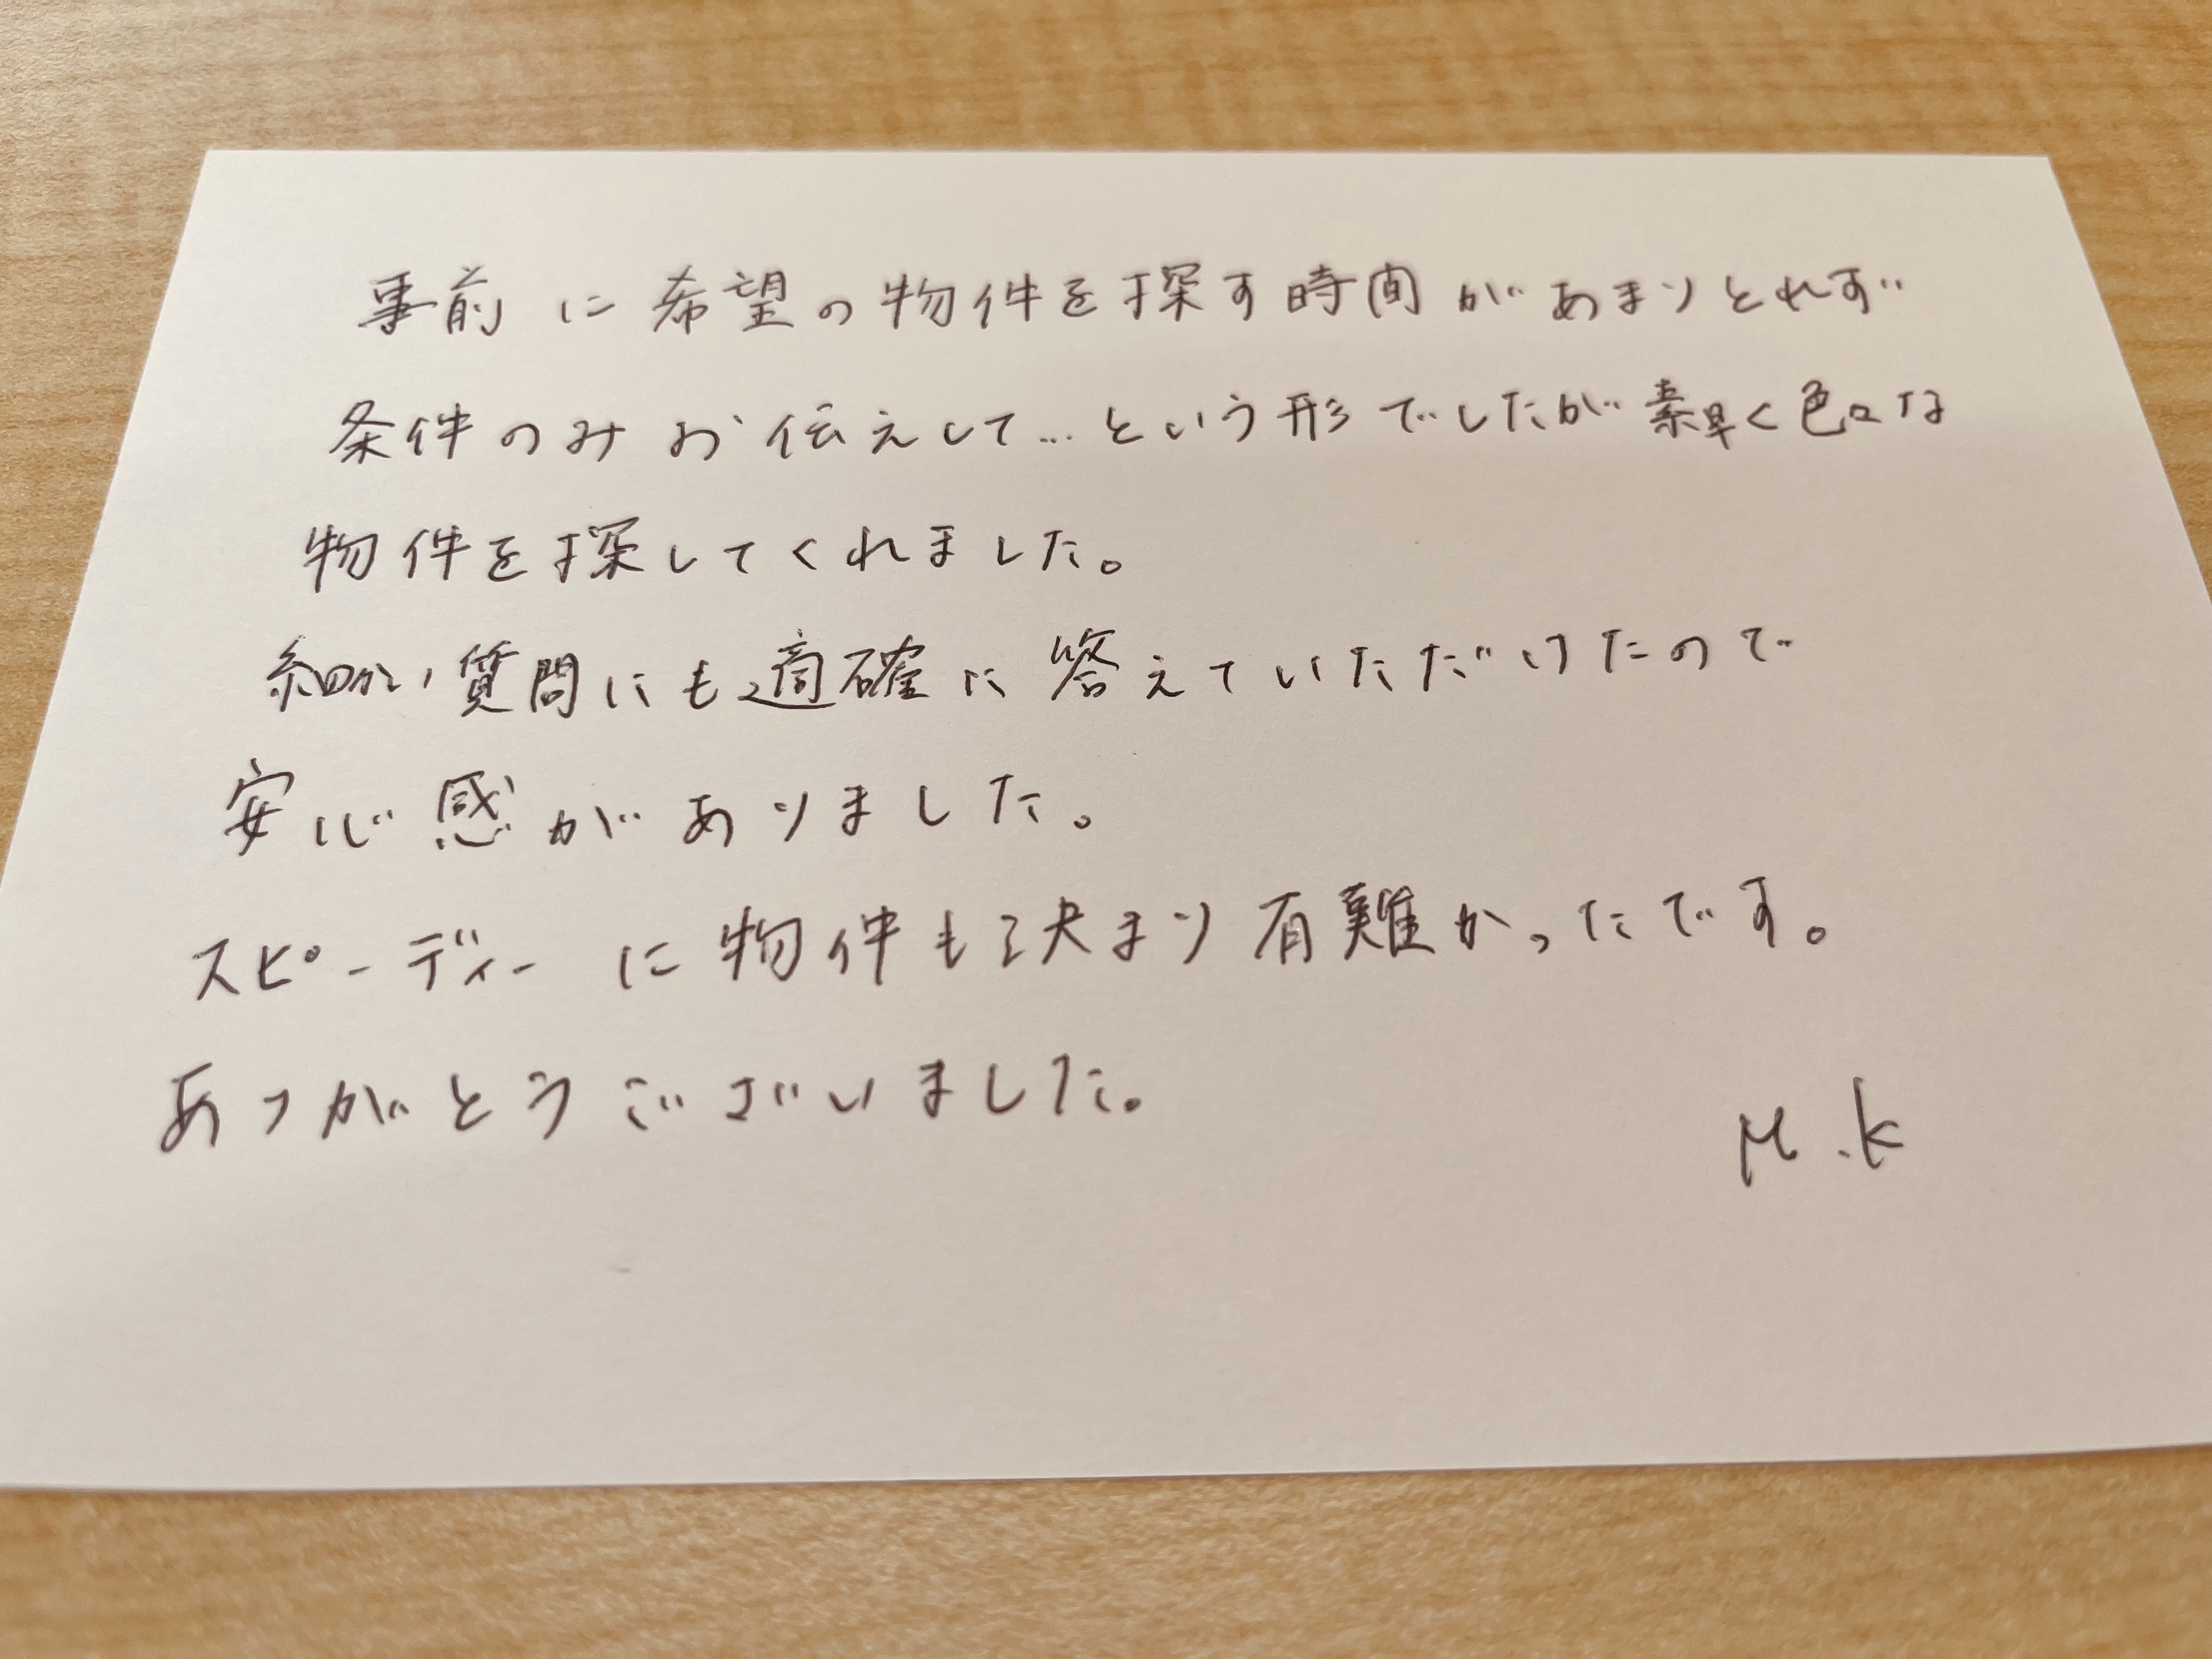 事前に希望の物件を探す時間があまりとれず
条件のみお伝えして…という形でしたが素早く色々な
物件を探してくれました。
細かい質問にも適確に答えていただけたので
安心感がありました。
スピーディーに物件も決まり有難かったです。
ありがとうございました。
M.K